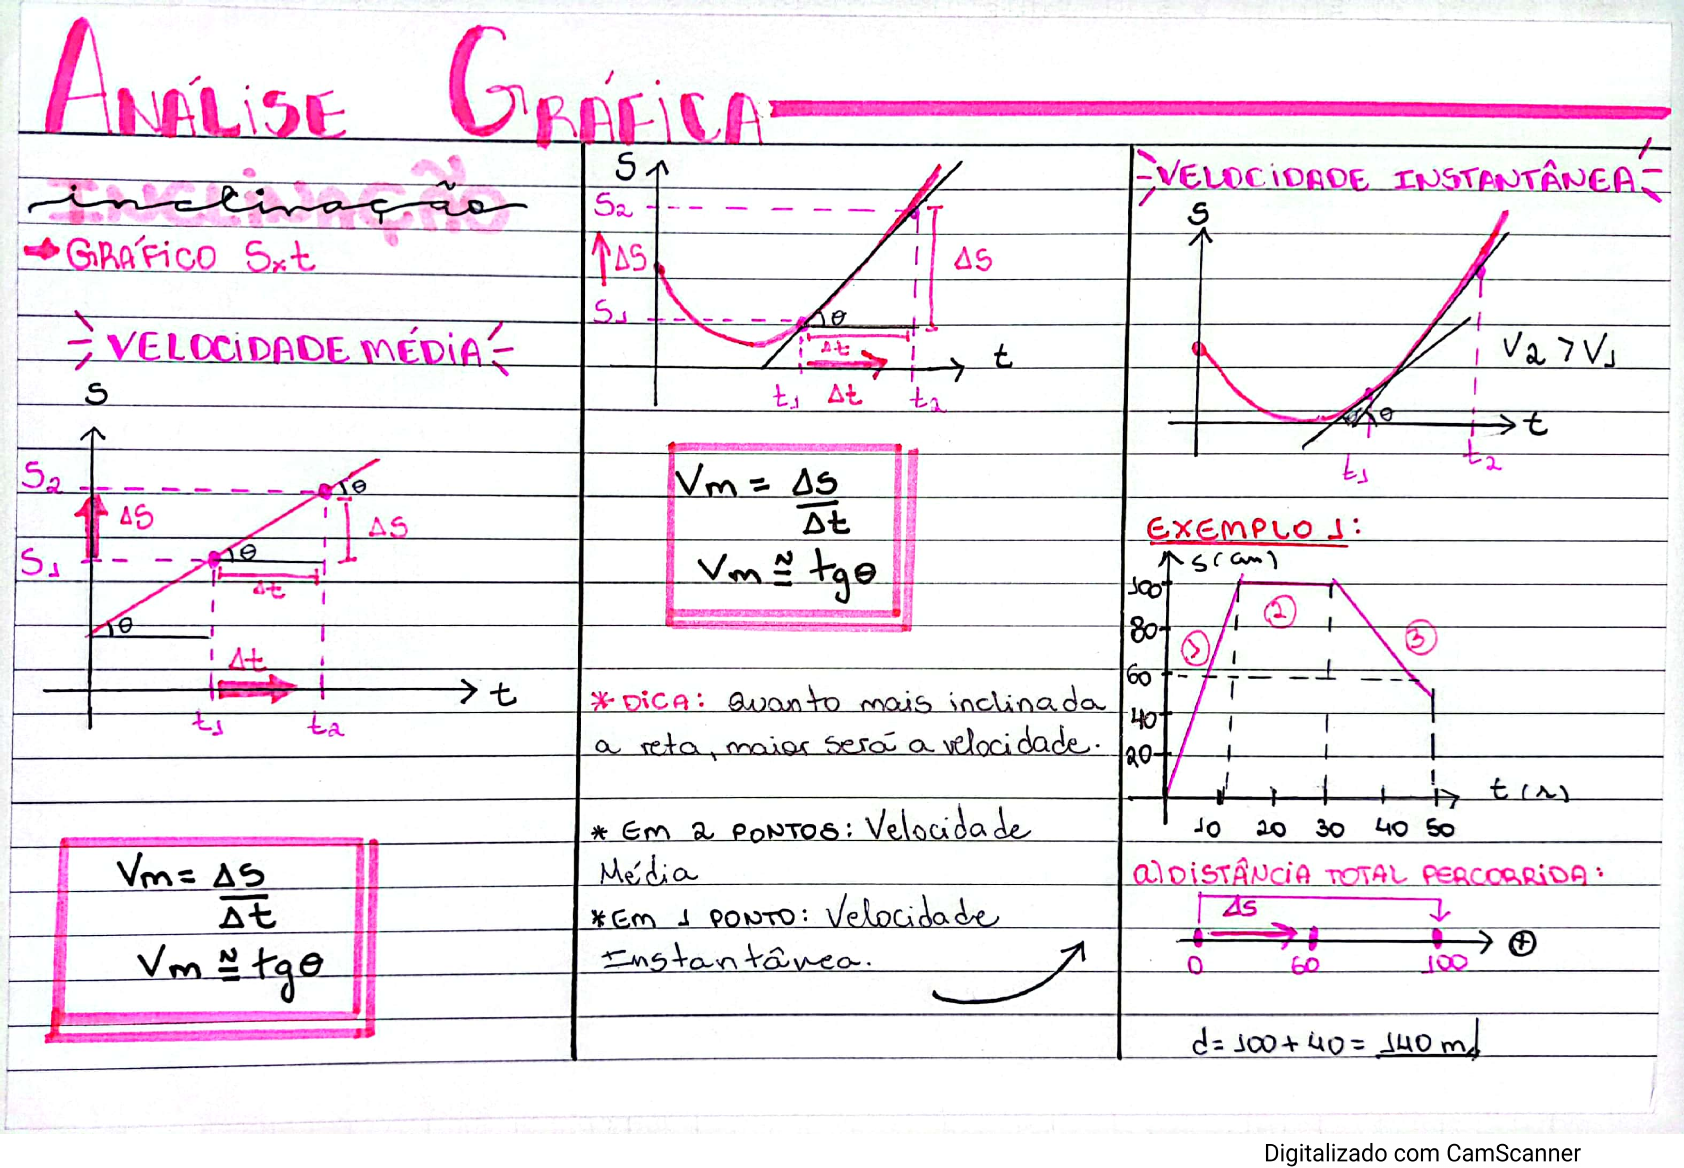 ANÁLISE GRÁFICA
INCLINAÇÃO
inclinação
GRÁFICO Sxt
VELOCIDADE MÉDIA
S
S2
θ
ΔS
ΔS
S1
θ
Δt
θ
Δt
t
t1
t2
Vm = ΔS
Δt
Vm ≅ tgθ
S
S2
ΔS
ΔS
S1
θ
Δt
t
t1
Δt
t2
Vm = ΔS
Δt
Vm ≅ tgθ
* DICA: Quanto mais inclinada
a reta, maior será a velocidade.
* EM 2 PONTOS: Velocidade
Média
* EM 1 PONTO: Velocidade
Instantânea.
VELOCIDADE INSTANTÂNEA
S
V2 > V1
θ
t
t1
t2
EXEMPLO 1:
S(cm)
100
2
80
1
3
60
40
20
t(s)
10 20 30 40 50
a) DISTÂNCIA TOTAL PERCORRIDA:
ΔS
+
0 60 100
d= 100 + 40 = 140 m
Digitalizado com CamScanner